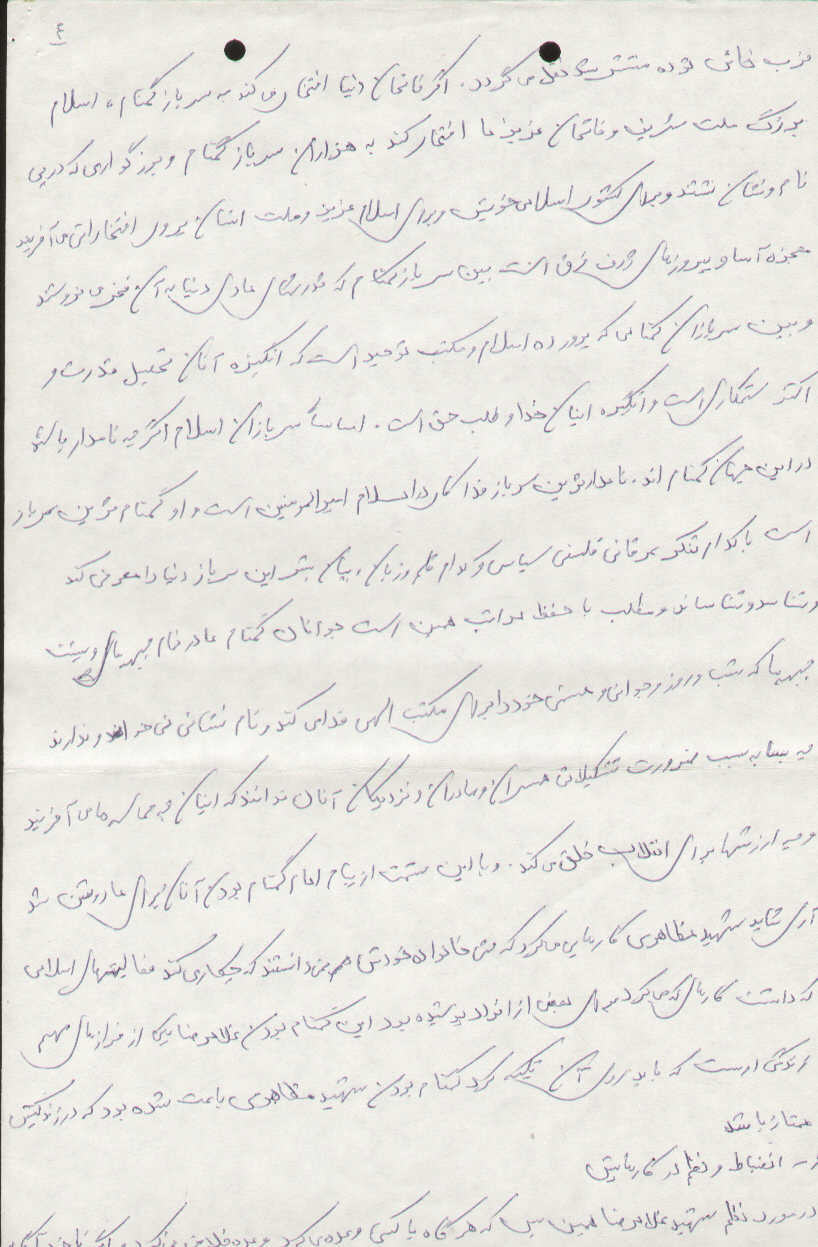 ٤
حزب خائن توده منتشر شد نقل می گردد. اگر فاتحان دنیا افتخار می کند به سرباز گمنام، اسلام
بزرگ ملت شریف و فاتحان عزیز ما افتخار کند به هزاران سرباز گمنام و بزرگواری که در پی
نام و نشان نشدند و برای کشور اسلامی خویش و برای اسلام عزیز و ملت ایشان پیروز افتخاراتی می آفرینند
معجزه آسا و پیروزیهای ژرف فرق است بین سرباز گمنام که قدرتهای مادی دنیا به آن فخر می فروشند
و بین سربازان گمنامی که پرورده اسلام و مکتب توحید است که انگیزه آنان تحمیل قدرت و
اکثر ستمکاری است و انگیزه اینان خدا و طلب حق است. اساساً سربازان اسلام اگر چه نامدار باشند
در این جهان گمنام اند. نامدارترین سرباز فداکار در اسلام امیرالمومنین است و او گمنام ترین سرباز
است با کدام تفکر عرفانی فلسفی سیاسی و کدام قلم و زبان و بیان بشر این سرباز دنیا را معرفی کند
و شناسد و شناساند و مطلب با حفظ مراتب همین است جوانان گمنام ما در تمام جبهه های و پشت
جبهه ها که شب و روز و جوانی و هستی خود را برای مکتب الهی فدا می کند و نام نشانی نمی خواهند و ندارند
چه بسا به سبب ضرورت تشکیلاتی همسران و مادران و نزدیکان آنان ندانند که اینان چه حماسه ها می آفرینند
و چه ارزشها برای انقلاب خلق می کند. و با این قسمت از پیام امام گمنام بودن آنان برای ما روشن شد
آری شاید شهید مظاهری کارهایی می کرد که حتی خانواده خودش هم نمی دانستند که چکاری کند فعالیتهای اسلامی
که داشت کارهای که می کرد برای بعضی از افراد پوشیده بود این گمنام بودن غلامرضا یکی از فرازهای مهم
زندگی اوست که باید روی آن تکیه کرد گمنام بودن شهید مظاهری باعث شده بود که در زندگیش
ممتاز باشد
- انضباط و نظم در کارهایش
در مورد نظم شهید غلامرضا همین بس که هر گاه با کسی وعده می کرد